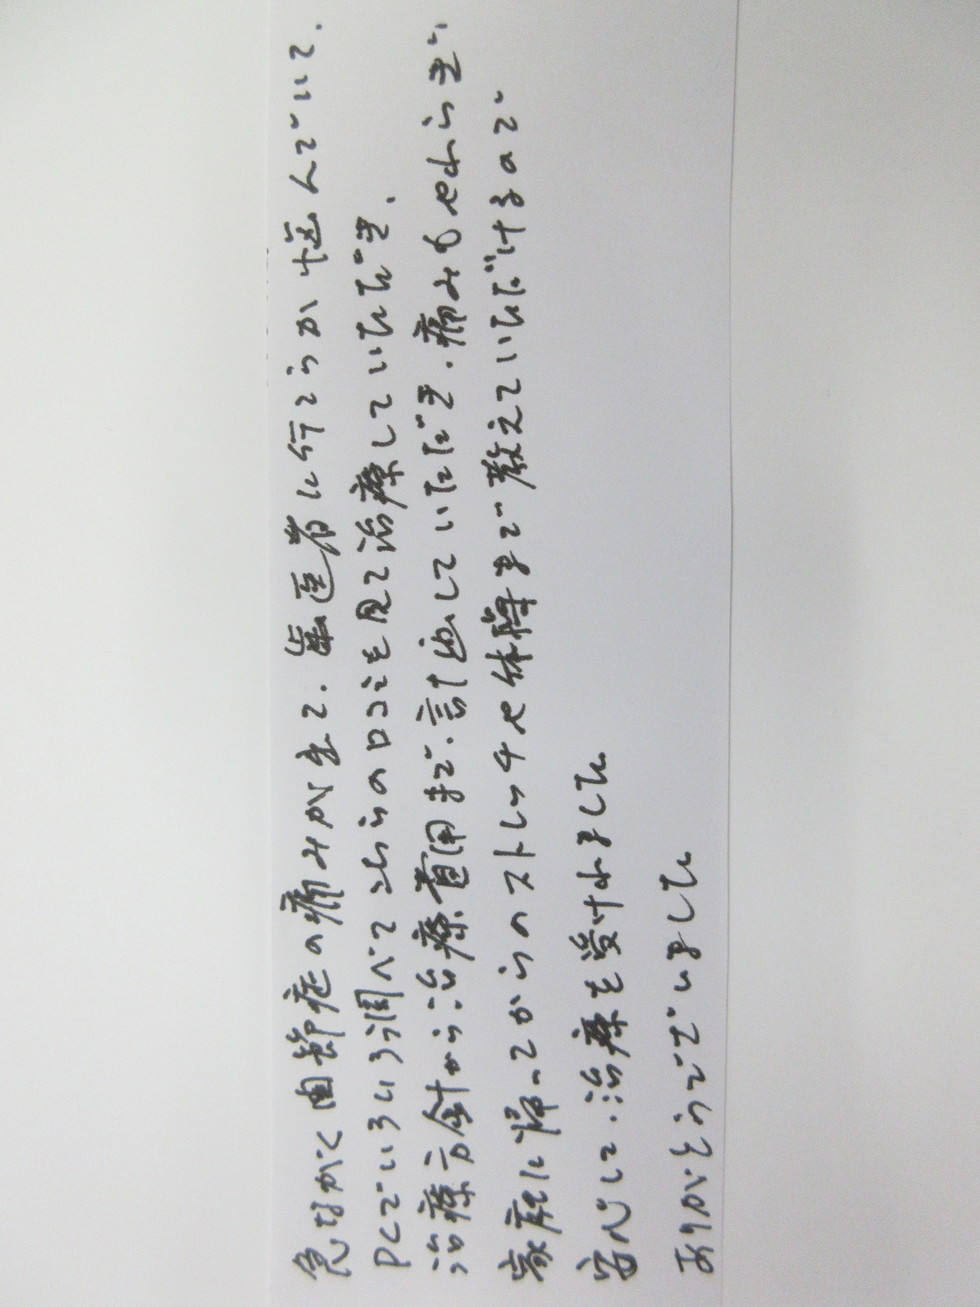 急ながく関節症の痛みが来て、歯医者に行こうか悩んでいて、
PCでいろいろ調べてこちらの口コミを見て治療していただき、
治療方針から治療費用まで、計画していただき、痛みもやわらぎ
家庭に帰ってからのストレッチや体操まで教えていただけるので
安心して、治療を受けれました
ありがとうございました